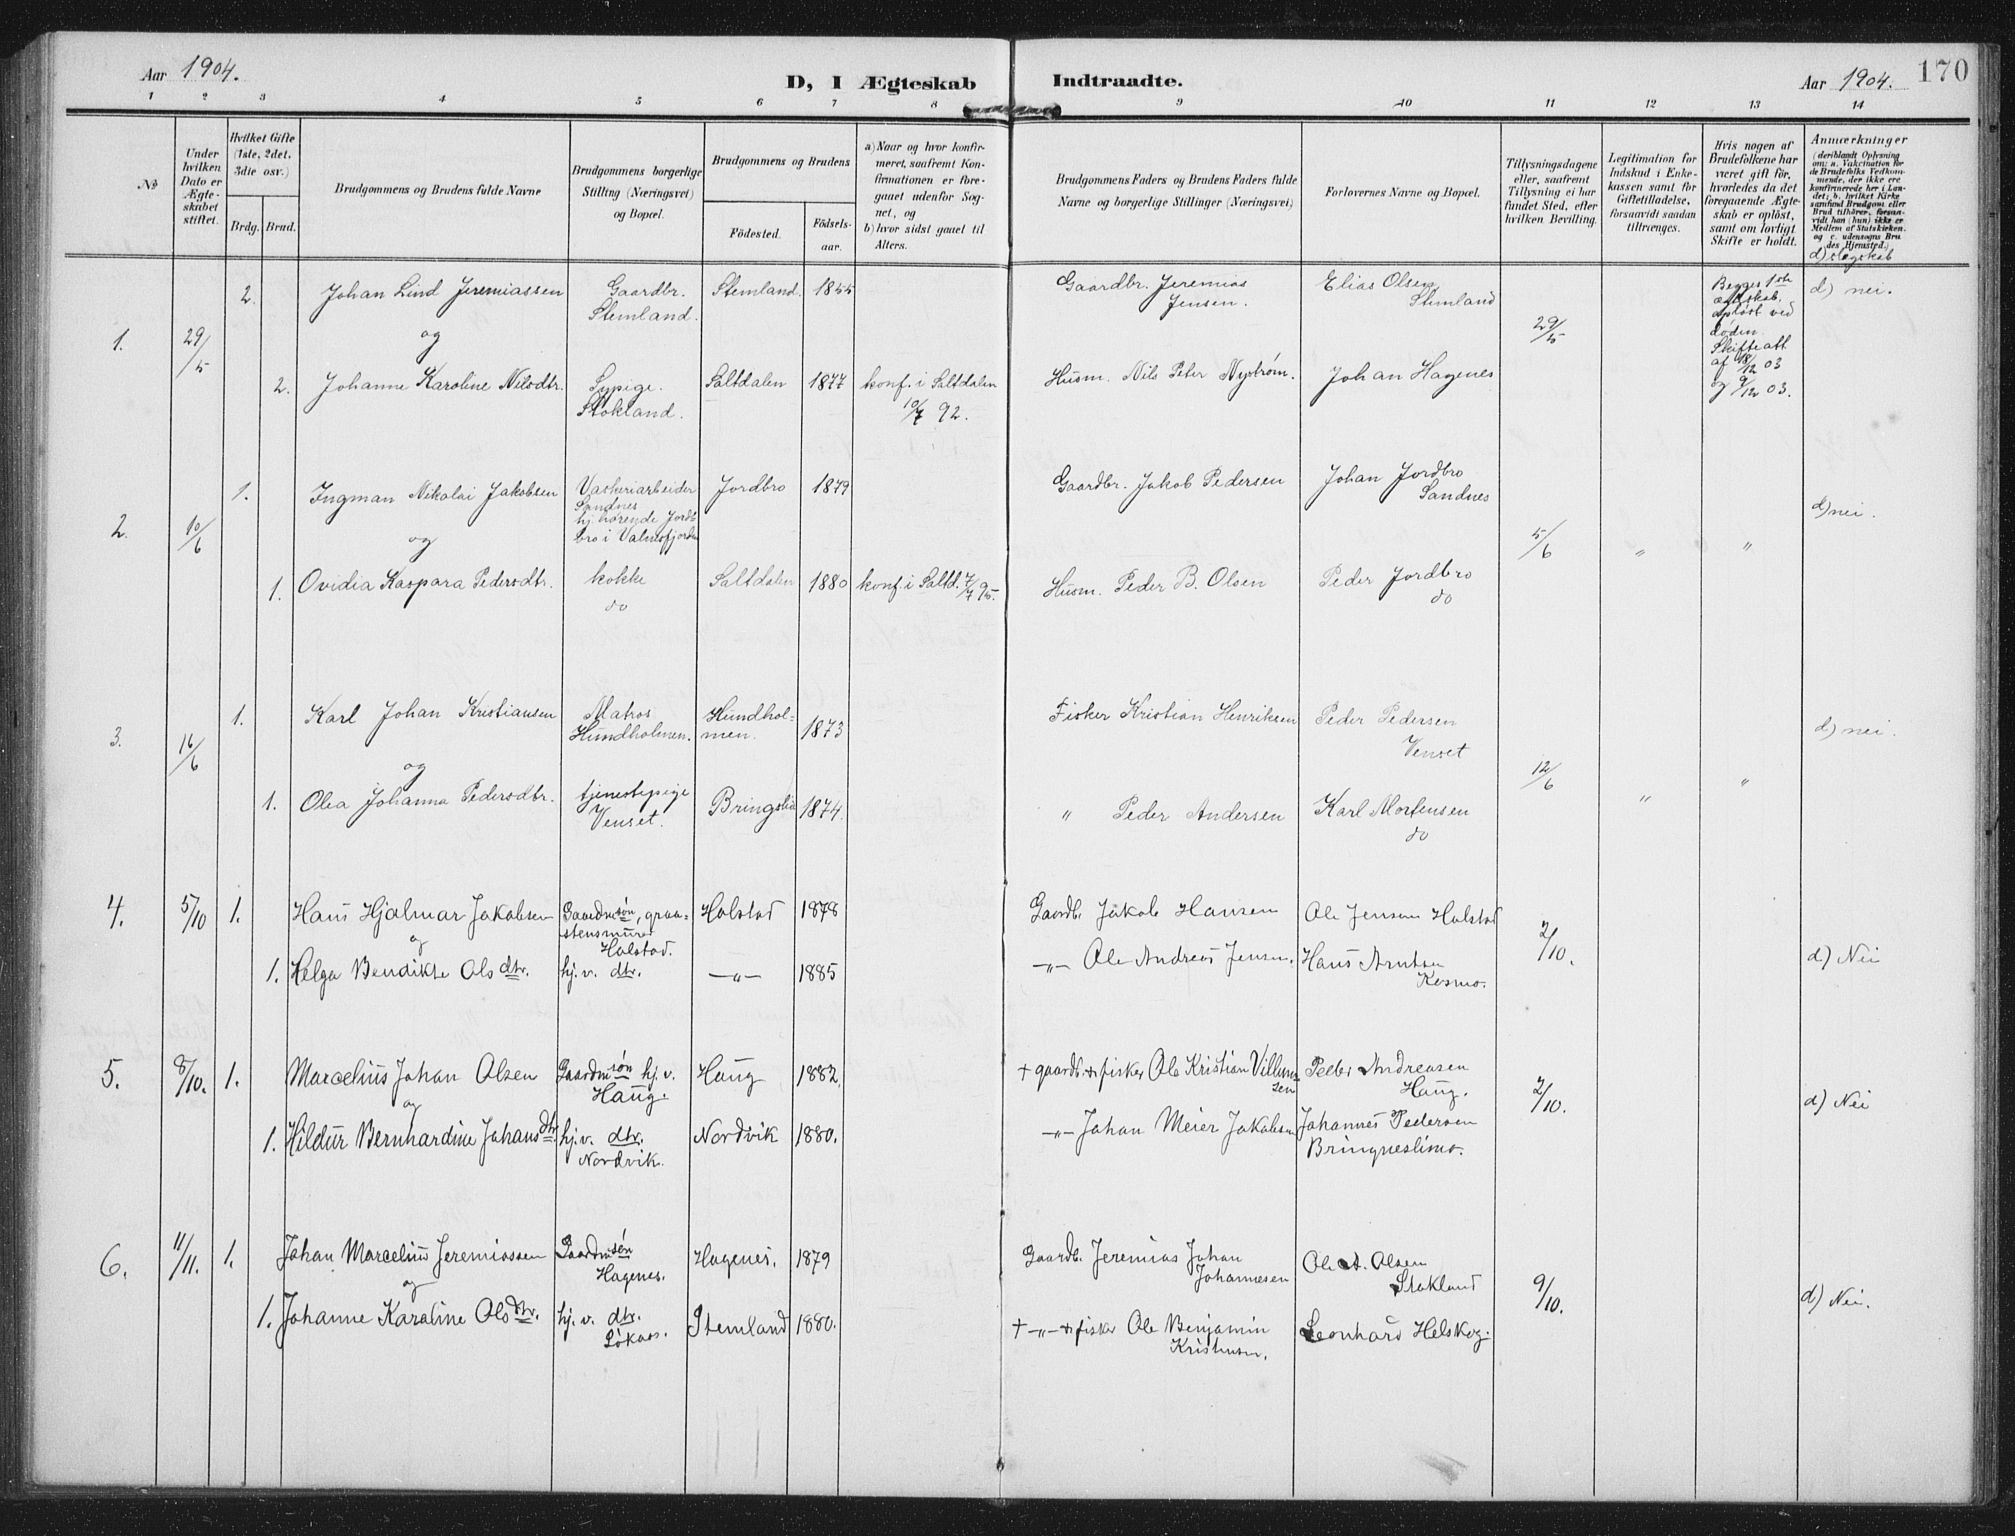 Aar 1904.
D, I Ægteskab Indtraadte.
Aar 1904.
170
1 2 3 4 5 6 7 8 9 10 11 12 13 14
No
Under hvilken Dato er Ægteskabet stiftet.
Hvilket Gifte (1ste, 2det, 3die osv.)
Brdg. Brud.
Brudgommens og Brudens fulde Navne
Brudgommens borgerlige Stilling (Næringsvei) og Bopæl.
Brudgommens og Brudens
Födested.
Födselsaar.
a) Naar og hvor konfirmeret, saafremt Konfirmationen er foregaaet udenfor Sognet, og
b) hvor sidst gaaet til Alters.
Brudgommens Faders og Brudens Faders fulde Navne og borgerlige Stillinger (Næringsvei)
Forlovernes Navne og Bopæl.
Tillysningsdagene eller, saafremt Tillysning ei har fundet Sted, efter hvilken Bevilling.
Legitimation for Indskud i Enkekassen samt för Giftetilladelse, forsaavidt saadan tiltrænges.
Hvis nogen af Brudefolkene har været gift för, hvorledes da det foregaaende Ægteskab er oplöst, samt om lovligt Skifte er holdt.
Anmærkninger
(deriblandt Oplysning om: a. Vakcination for de Brudefolks Vedkommende, der ikke ere konfirmerede her i Landet; b. hvilket Kirkesamfund Brudgom eller Brud tilhörer, forsaavidt han (hun) ikke er Medlem af Statskirken, og c. udensogns Brudes Hjemsted.)
d) slægskab
1. 29/5 2. Johan Lind Jeremiassen Gaardbr. Stemland. Stemland. 1855 Gaardbr. Jeremias Jensen. Elias Olsen Stemland 29/5 Begges 1ste ægteskab opløst ved døden. Skifteatt af 18/12 03 og 9/12 03. d) nei.
og
2. Johanne Karoline Nilsdtr. Sypige. Stokland. Saltdalen 1877 konf. i Saltdalen 10/7 92. Husm. Nils Peter Nystrøm. Johan Hagenes
2. 10/6 1. Ingman Nikolai Jakobsen Vaskeriarbeider Sandnes hj. hørende Jordbro i Valnesfjorden Jordbro 1879 Gaardbr. Jakob Pedersen Johan Jordbro Sandnes 5/6 " " d) nei.
og
1. Ovidia Kaspara Pedersdtr. kokke do Saltdalen 1880 konf. i Saltd. 7/7 95. Husm. Peder B. Olsen Peder Jordbro do
3. 16/6 1. Karl Johan Kristiansen Matros Hundholmen. Hundholmen. 1873 Fisker Kristian Henriksen Peder Pedersen Venset 12/6 " " d) nei.
og
1. Olea Johanna Pedersdtr. tjenestepige Venset. Bringslid 1874. " Peder Andersen Karl Mortensen do
4. 5/10 1. Hans Hjalmar Jakobsen Gaardmsøn, graastensmurer Holstad. Holstad 1878 Gaardb. Jakob Hansen Ole Jensen Holstad 2/10. d) Nei
og
1. Helga Bendikte Olsdtr. hj. v. dtr. -"- 1885 -"- Ole Andreas Jensen. Hans Arntsen Kosmo.
5. 8/10. 1. Marcelius Johan Olsen Gaardmsøn hj. v. Haug. Haug 1882. + gaardb. & fisker Ole Kristian Villumsen Peder Andreasen Haug. 2/10. d) Nei
og
1. Hildur Bernhardine Johansdtr. hj. v. dtr. Nordvik. Nordvik 1880. -"- Johan Meier Jakobsen Johannes Pedersen Bringneslimo.
6. 11/11. 1. Johan Marcelius Jeremiassen Gaardmsøn Hagenes. Hagenes. 1879 Gaardb. Jeremias Johan Johannesen Ole A. Olsen Stokland 9/10. d) Nei.
og
1. Johanne Karoline Olsdtr. hj. v. dtr. Løkaas. Stemland 1880. + -"- & fisker Ole Benjamin Kristensen. Leonhard Helskog.